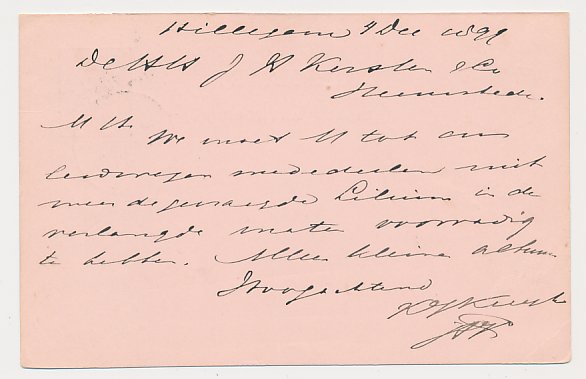 Hillegom 4 Dec 1899
De HH J H Kersten & Co
Heemstede.
M H. We moet U tot ons
leedwezen mededeelen niet
meer de gevraagde Lilium in de
verlangde maten voorradig
te hebben. Alleen kleine
Hoogachtend